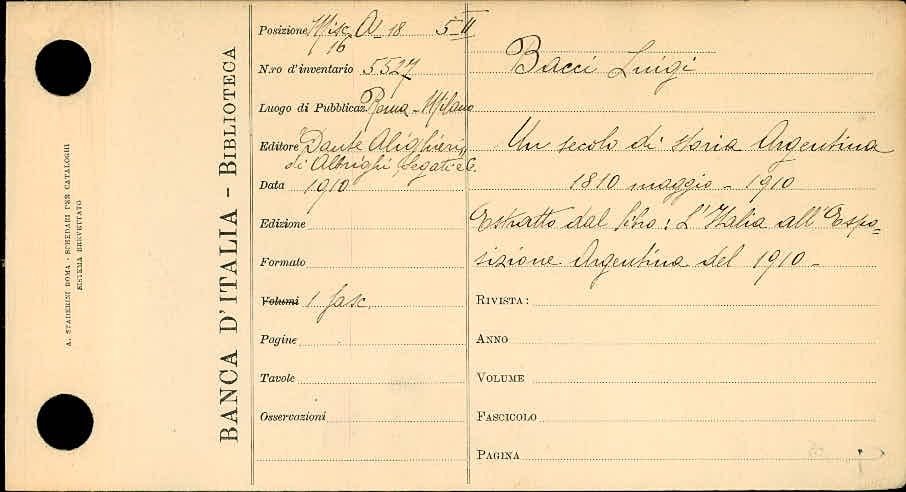 A. STADERINI ROMA - SCHEDARI PER CATALOGHI
SISTEMA BREVETTATO
BANCA D'ITALIA - BIBLIOTECA
Posizione Misc. A 18 5-II
16
N.ro d'inventario 5527
Luogo di Pubblicaz. Roma - Milano
Editore Dante Alighieri,
di Albrighi, Segati e C.
Data 1910
Edizione
Formato
Volumi 1 fasc.
Pagine
Tavole
Osservazioni
Bacci Luigi
Un secolo di storia Argentina
1810 maggio - 1910
Estratto dal libro: L'Italia all'Espo=
sizione Argentina del 1910 -
RIVISTA:
ANNO
VOLUME
FASCICOLO
PAGINA